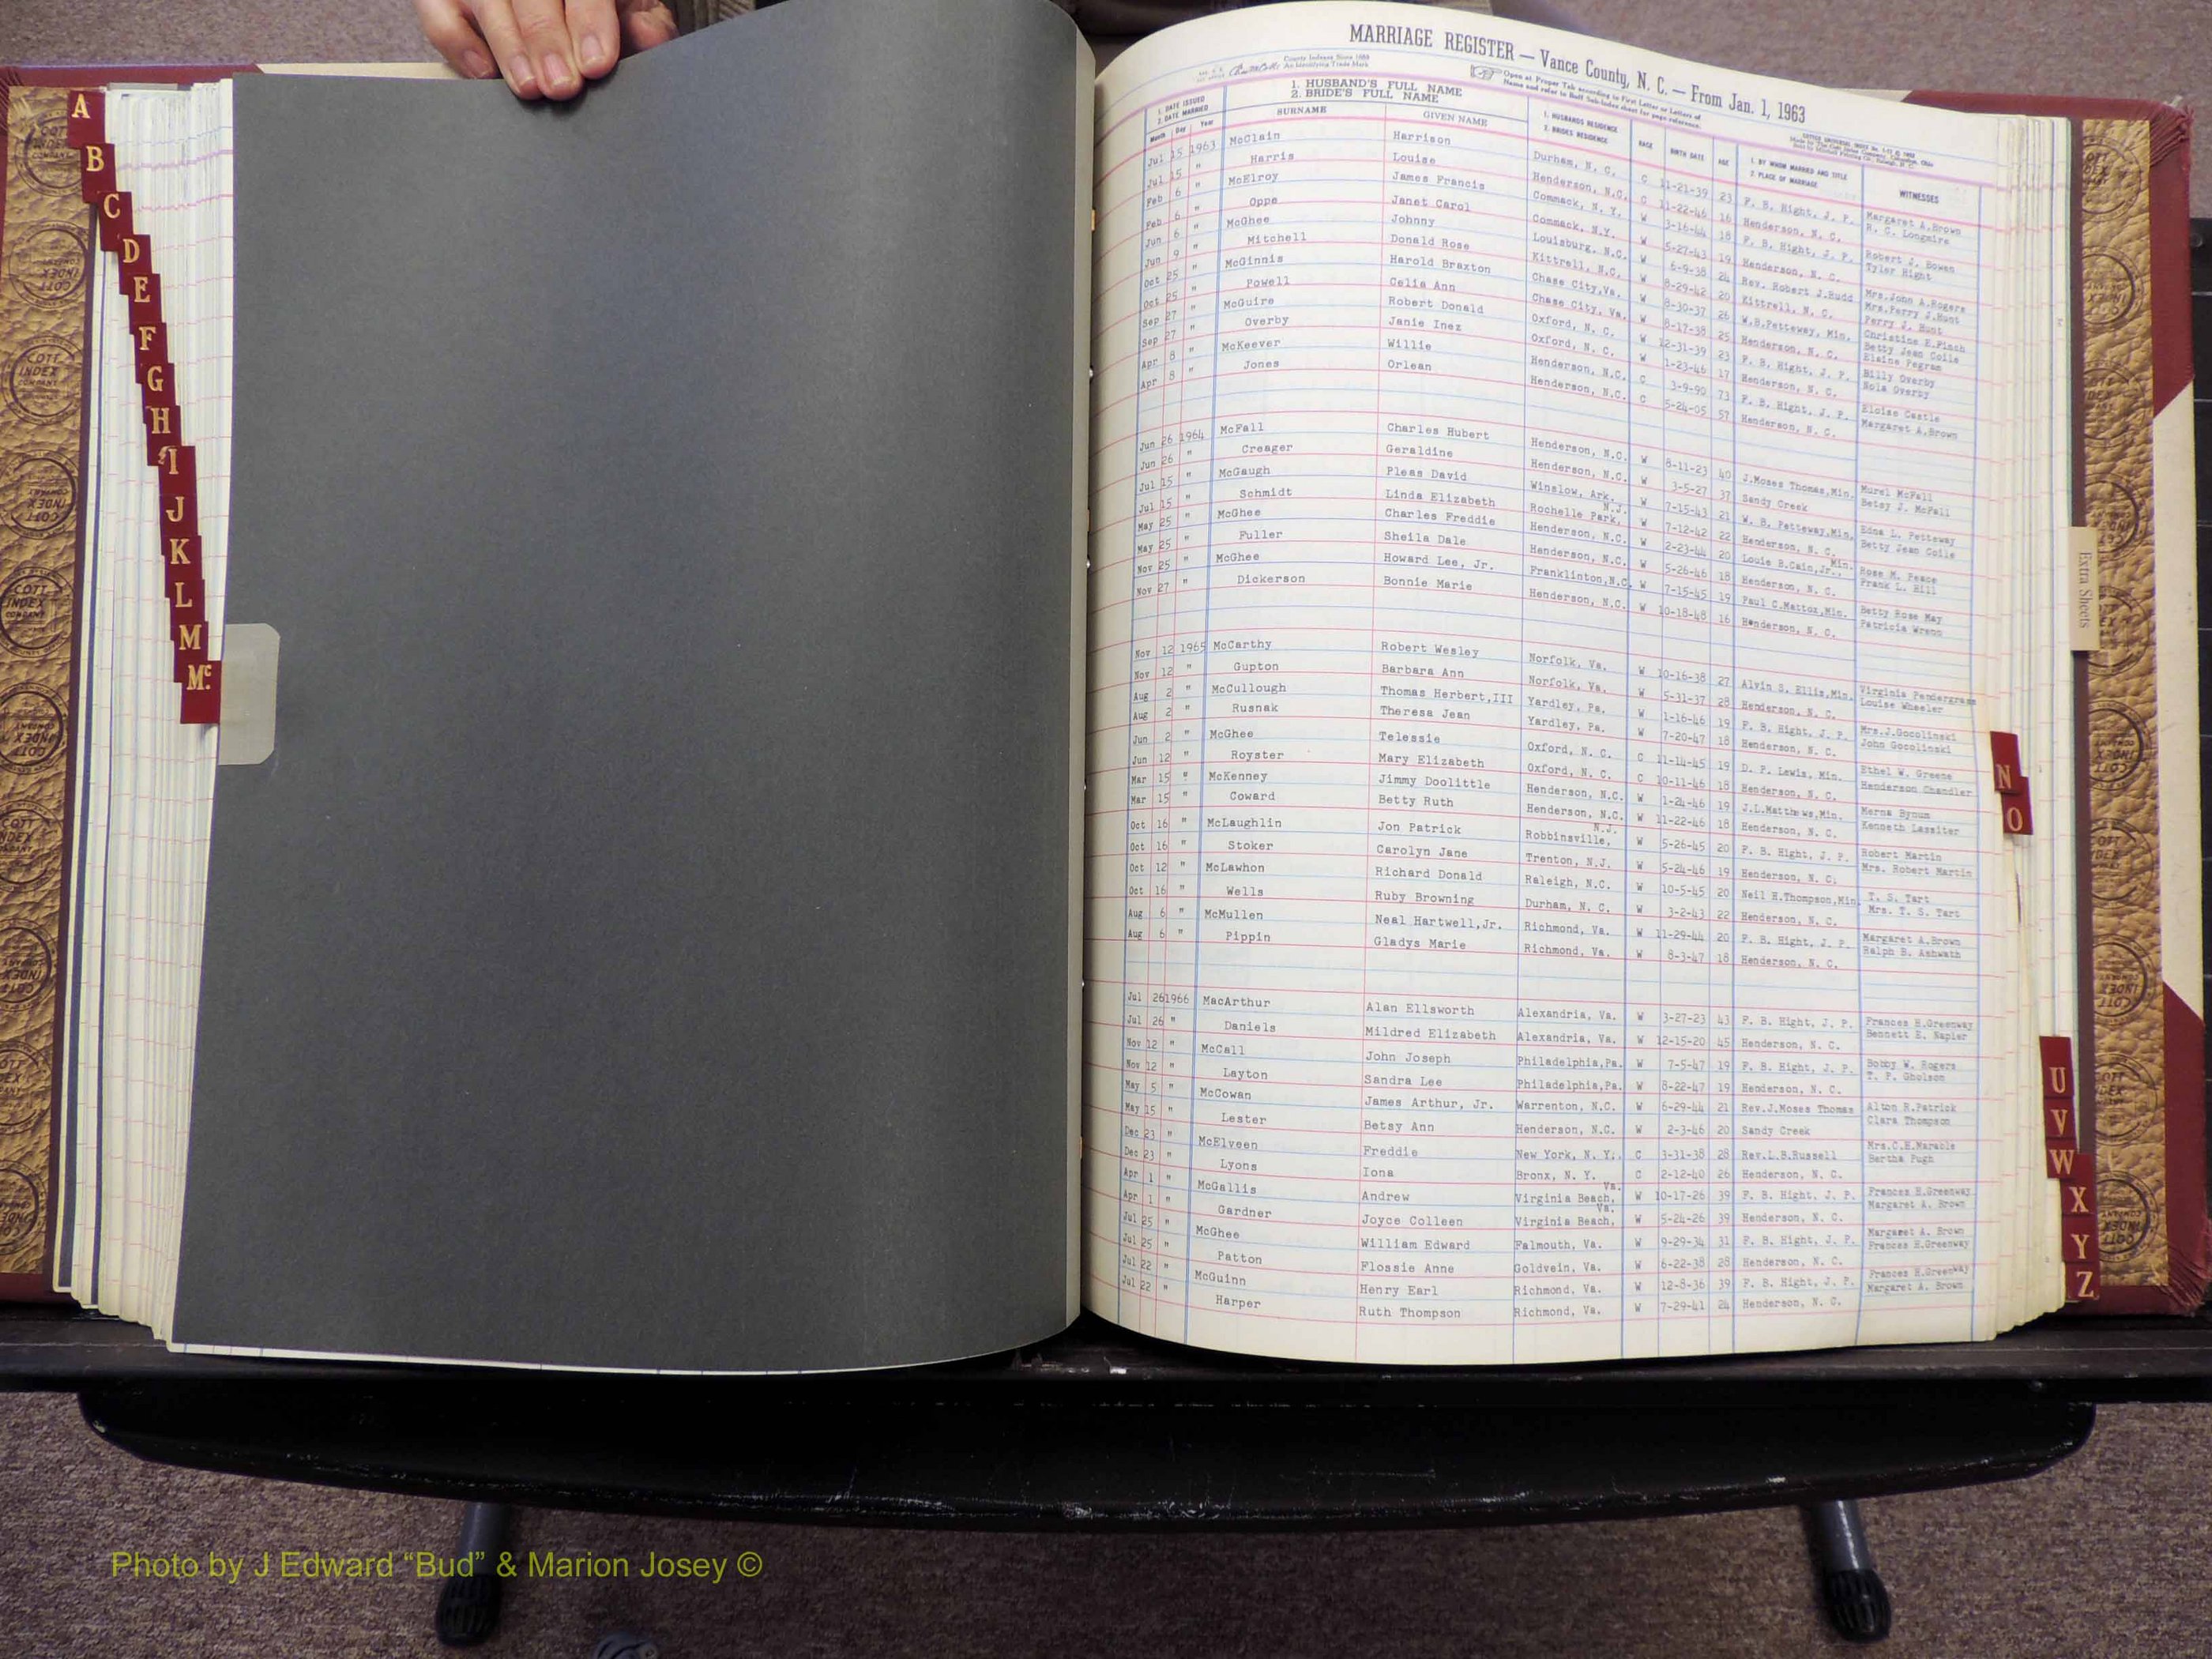 A
B
C
D
E
F
G
H
I
J
K
L
M
Mc
MARRIAGE REGISTER — Vance County, N. C. — From Jan. 1, 1963
County Indexes Since 1888
An Identifying Trade Mark
Open at Proper Tab according to First Letter or Letters of
Name and refer to Buff Sub-Index sheet for page reference.
1. DATE ISSUED
2. DATE MARRIED
Month Day Year
1. HUSBAND'S FULL NAME
2. BRIDE'S FULL NAME
SURNAME GIVEN NAME
1. HUSBANDS RESIDENCE
2. BRIDES RESIDENCE
RACE BIRTH DATE AGE
1. BY WHOM MARRIED AND TITLE
2. PLACE OF MARRIAGE
WITNESSES
Jul 15 1963 McClain Harrison Durham, N. C. C 11-21-39 23 F. B. Hight, J. P. Margaret A.Brown
Jul 15 " Harris Louise Henderson, N.C. C 11-22-46 16 Henderson, N. C. R. C. Longmire
Feb 6 " McElroy James Francis Commack, N. Y. W 3-16-44 18 F. B. Hight, J. P. Robert J. Bowen
Feb 6 " Oppe Janet Carol Commack, N.Y. W 5-27-43 19 Henderson, N. C. Tyler Hight
Jun 6 " McGhee Johnny Louisburg, N.C. W 6-9-38 24 Rev. Robert J.Rudd Mrs.John A.Rogers
Jun 9 " Mitchell Donald Rose Kittrell, N.C. W 8-29-42 20 Kittrell, N. C. Mrs.Perry J.Hunt
Perry J. Hunt
Oct 25 " McGinnis Harold Braxton Chase City,Va. W 8-30-37 26 W.B.Petteway, Min. Christine E.Finch
Oct 25 " Powell Celia Ann Chase City, Va. W 8-17-38 25 Henderson, N. C. Betty Jean Coile
Elaine Pegram
Sep 27 " McGuire Robert Donald Oxford, N. C. W 12-31-39 23 F. B. Hight, J. P. Billy Overby
Sep 27 " Overby Janie Inez Oxford, N. C. W 1-23-46 17 Henderson, N. C. Nola Overby
Apr 8 " McKeever Willie Henderson, N.C. C 3-9-90 73 F. B. Hight, J. P. Eloise Castle
Apr 8 " Jones Orlean Henderson, N.C. C 5-24-05 57 Henderson, N. C. Margaret A.Brown
Jun 26 1964 McFall Charles Hubert Henderson, N.C. W 8-11-23 40 J.Moses Thomas,Min. Murel McFall
Jun 26 " Creager Geraldine Henderson, N.C. W 3-5-27 37 Sandy Creek Betsy J. McFall
Jul 15 " McGaugh Pleas David Winslow, Ark. W 7-15-43 21 W. B. Petteway,Min. Edna L. Petteway
Jul 15 " Schmidt Linda Elizabeth Rochelle Park, N.J. W 7-12-42 22 Henderson, N. C. Betty Jean Coile
May 25 " McGhee Charles Freddie Henderson, N.C. W 2-23-44 20 Louie B.Cain,Jr., Min. Rose M. Peace
May 25 " Fuller Sheila Dale Henderson, N.C. W 5-26-46 18 Henderson, N. C. Frank L. Hill
Nov 25 " McGhee Howard Lee, Jr. Franklinton,N.C. W 7-15-45 19 Paul C.Mattox,Min. Betty Rose May
Nov 27 " Dickerson Bonnie Marie Henderson, N.C. W 10-18-48 16 Henderson, N. C. Patricia Wrenn
Nov 12 1965 McCarthy Robert Wesley Norfolk, Va. W 10-16-38 27 Alvin S. Ellis,Min. Virginia Pendergrass
Nov 12 " Gupton Barbara Ann Norfolk, Va. W 5-31-37 28 Henderson, N. C. Louise Wheeler
Aug 2 " McCullough Thomas Herbert,III Yardley, Pa. W 1-16-46 19 F. B. Hight, J. P. Mrs.J.Gocolinski
Aug 2 " Rusnak Theresa Jean Yardley, Pa. W 7-20-47 18 Henderson, N. C. John Gocolinski
Jun 2 " McGhee Telessie Oxford, N. C. C 11-14-45 19 D. P. Lewis, Min. Ethel W. Greene
Jun 12 " Royster Mary Elizabeth Oxford, N. C. C 10-11-46 18 Henderson, N. C. Henderson Chandler
Mar 15 " McKenney Jimmy Doolittle Henderson, N.C. W 1-24-46 19 J.L.Matthews,Min. Merna Bynum
Mar 15 " Coward Betty Ruth Henderson, N.C. W 11-22-46 18 Henderson, N. C. Kenneth Lassiter
Oct 16 " McLaughlin Jon Patrick Robbinsville, N.J. W 5-26-45 20 F. B. Hight, J. P. Robert Martin
Oct 16 " Stoker Carolyn Jane Trenton, N.J. W 5-24-46 19 Henderson, N. C. Mrs. Robert Martin
Oct 12 " McLawhon Richard Donald Raleigh, N.C. W 10-5-45 20 Neil H.Thompson,Min. T. S. Tart
Oct 16 " Wells Ruby Browning Durham, N. C. W 3-2-43 22 Henderson, N. C. Mrs. T. S. Tart
Aug 6 " McMullen Neal Hartwell,Jr. Richmond, Va. W 11-29-44 20 F. B. Hight, J. P. Margaret A.Brown
Aug 6 " Pippin Gladys Marie Richmond, Va. W 8-3-47 18 Henderson, N. C. Ralph B. Ashwath
Jul 26 1966 MacArthur Alan Ellsworth Alexandria, Va. W 3-27-23 43 F. B. Hight, J. P. Frances H.Greenway
Jul 26 " Daniels Mildred Elizabeth Alexandria, Va. W 12-15-20 45 Henderson, N. C. Bennett E. Napier
Nov 12 " McCall John Joseph Philadelphia,Pa. W 7-5-47 19 F. B. Hight, J. P. Bobby W. Rogers
Nov 12 " Layton Sandra Lee Philadelphia,Pa. W 8-22-47 19 Henderson, N. C. T. P. Gholson
May 5 " McCowan James Arthur, Jr. Warrenton, N.C. W 6-29-44 21 Rev.J.Moses Thomas Alton R.Patrick
May 15 " Lester Betsy Ann Henderson, N.C. W 2-3-46 20 Sandy Creek Clara Thompson
Dec 23 " McElveen Freddie New York, N. Y. C 3-31-38 28 Rev.L.B.Russell Mrs.C.E.Marable
Dec 23 " Lyons Iona Bronx, N. Y. C 2-12-40 26 Henderson, N. C. Bertha Pugh
Apr 1 " McGallis Andrew Virginia Beach, Va. W 10-17-26 39 F. B. Hight, J. P. Frances H.Greenway
Apr 1 " Gardner Joyce Colleen Virginia Beach, Va. W 5-24-26 39 Henderson, N. C. Margaret A. Brown
Jul 25 " McGhee William Edward Falmouth, Va. W 9-29-34 31 F. B. Hight, J. P. Margaret A. Brown
Jul 25 " Patton Flossie Anne Goldvein, Va. W 6-22-38 28 Henderson, N. C. Frances H.Greenway
Jul 22 " McGuinn Henry Earl Richmond, Va. W 12-8-36 39 F. B. Hight, J. P. Frances H.Greenway
Jul 22 " Harper Ruth Thompson Richmond, Va. W 7-29-41 24 Henderson, N. C. Margaret A. Brown
Extra Sheets
N
O
U
V
W
X
Y
Z
COTT
INDEX
COMPANY
Photo by J Edward “Bud” & Marion Josey ©